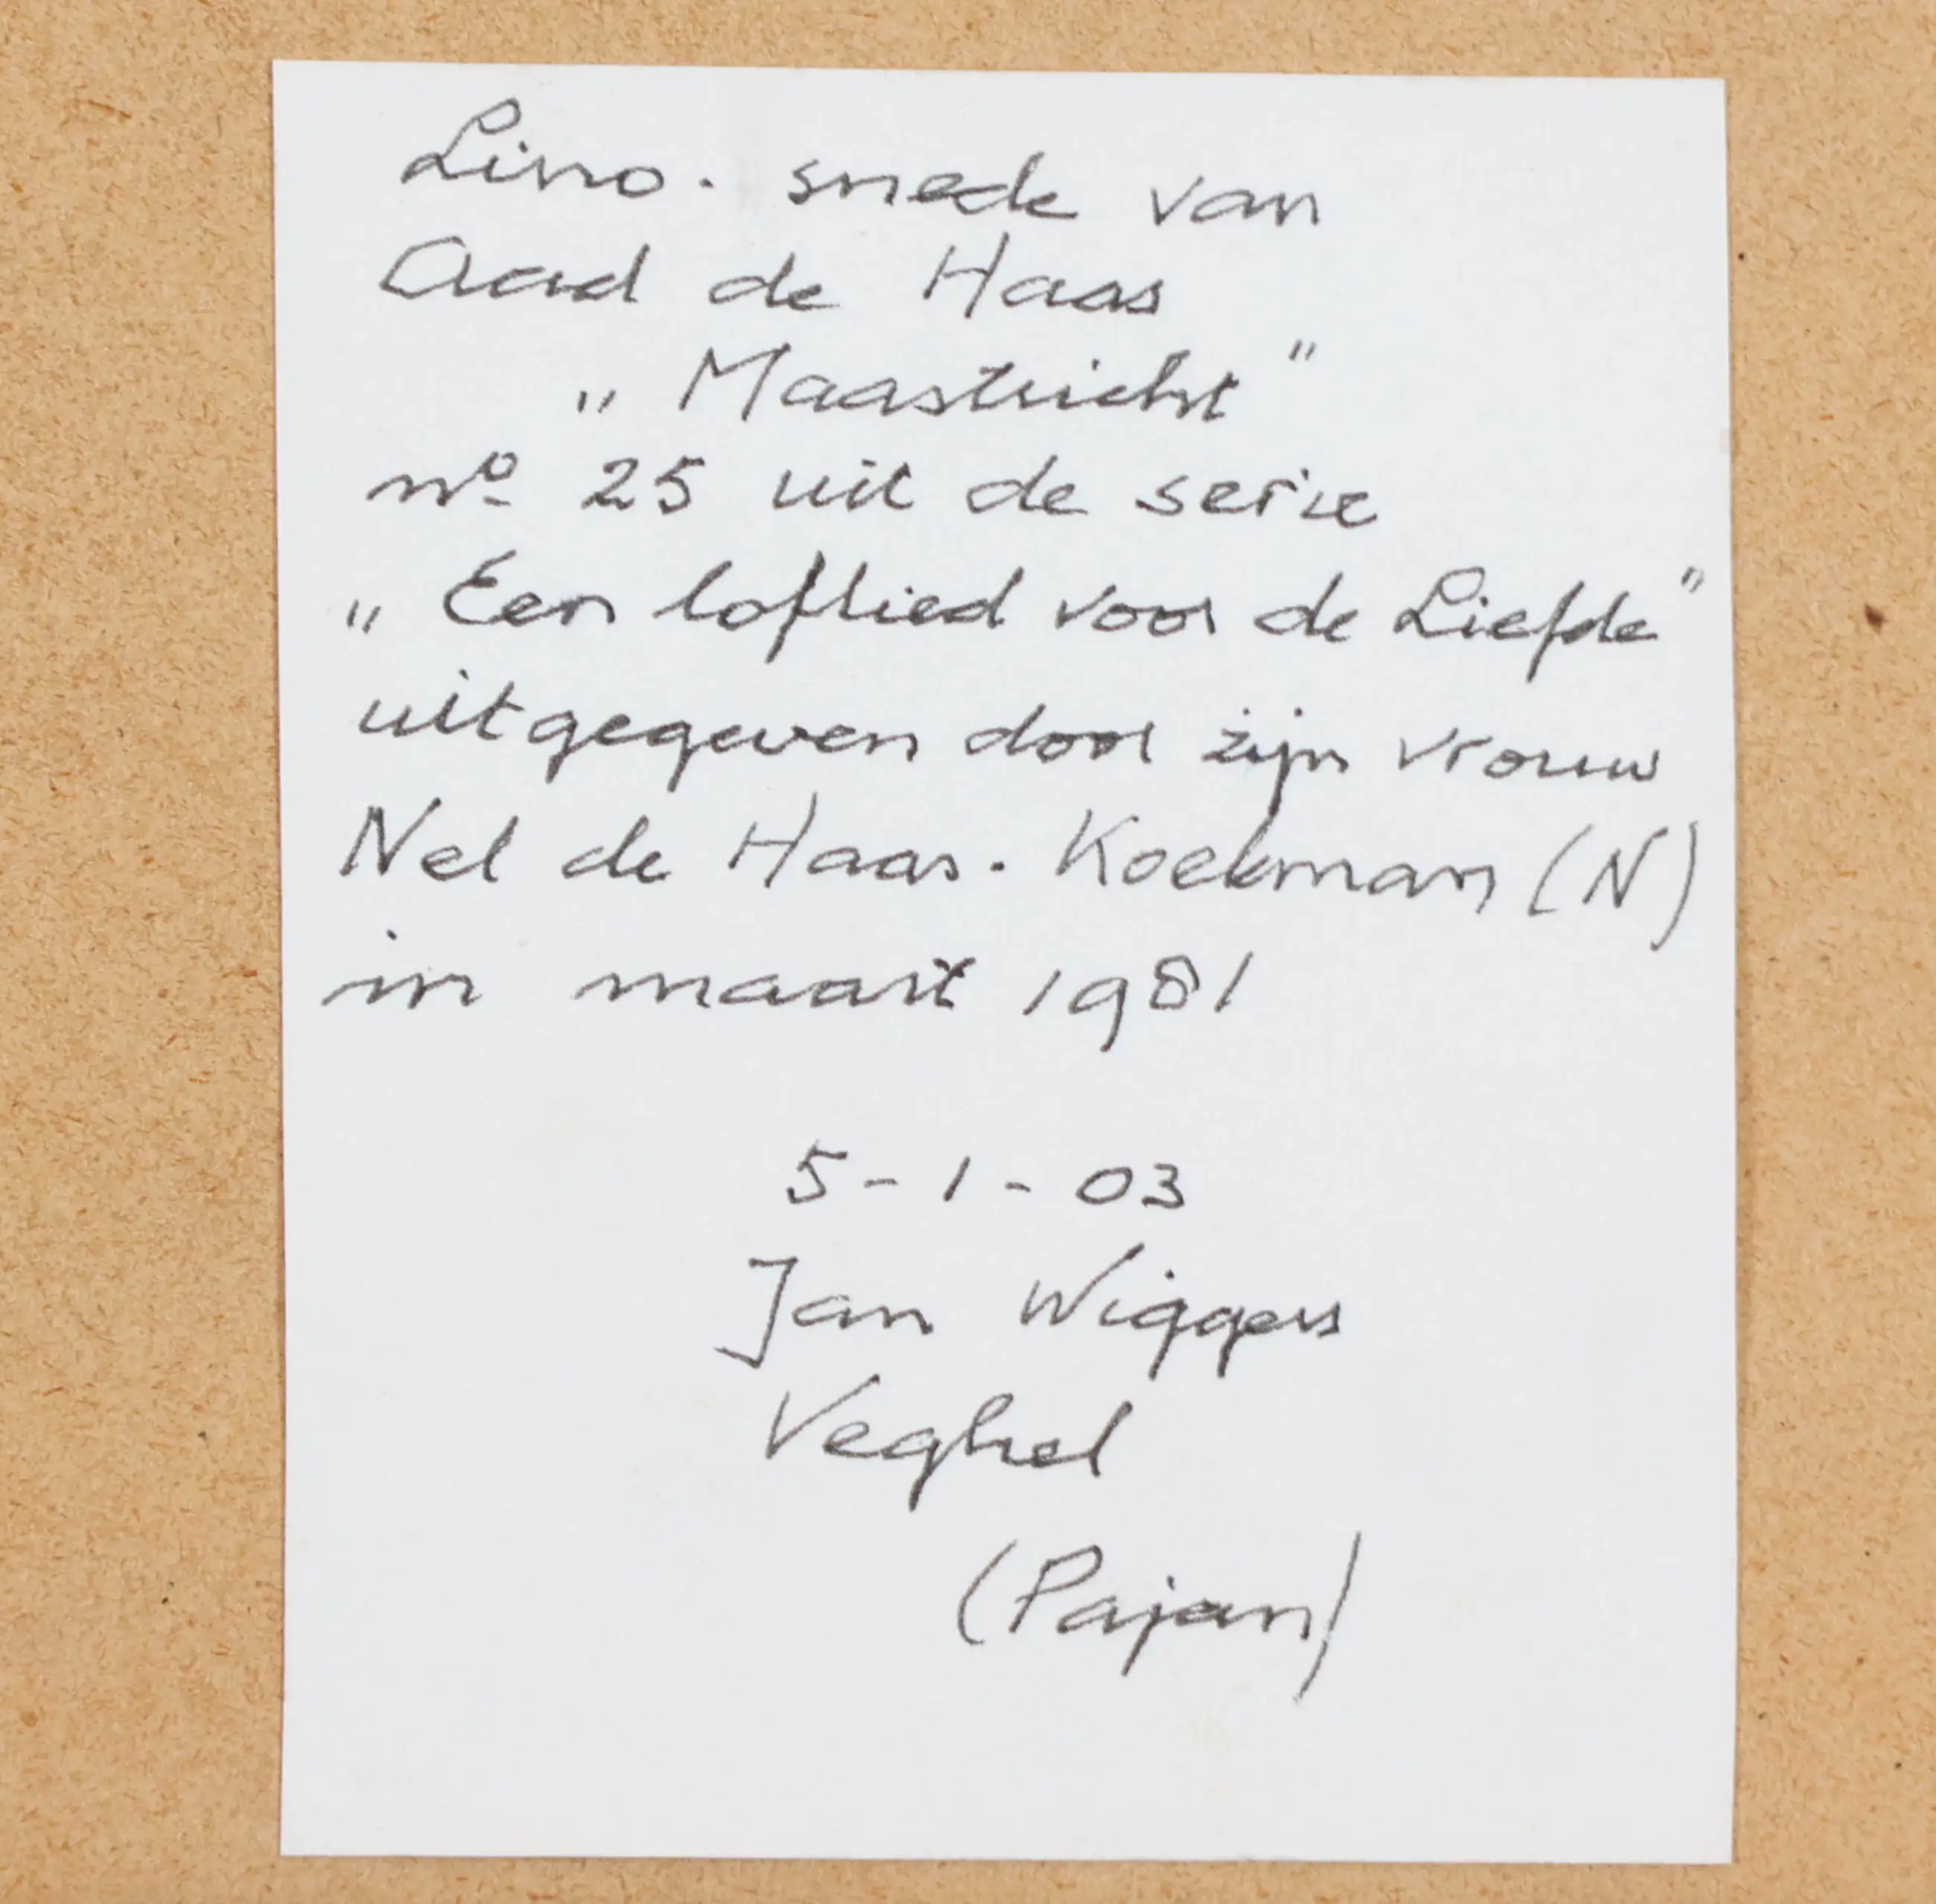 Lino. snede van
Aad de Haas
„ Maastricht "
nº 25 uit de serie
„ Een loflied voor de Liefde "
uitgegeven door zijn vrouw
Nel de Haas. Koekman (N)
in maart 1981
5-1-03
Jan Wiggers
Veghel
(Pajan)